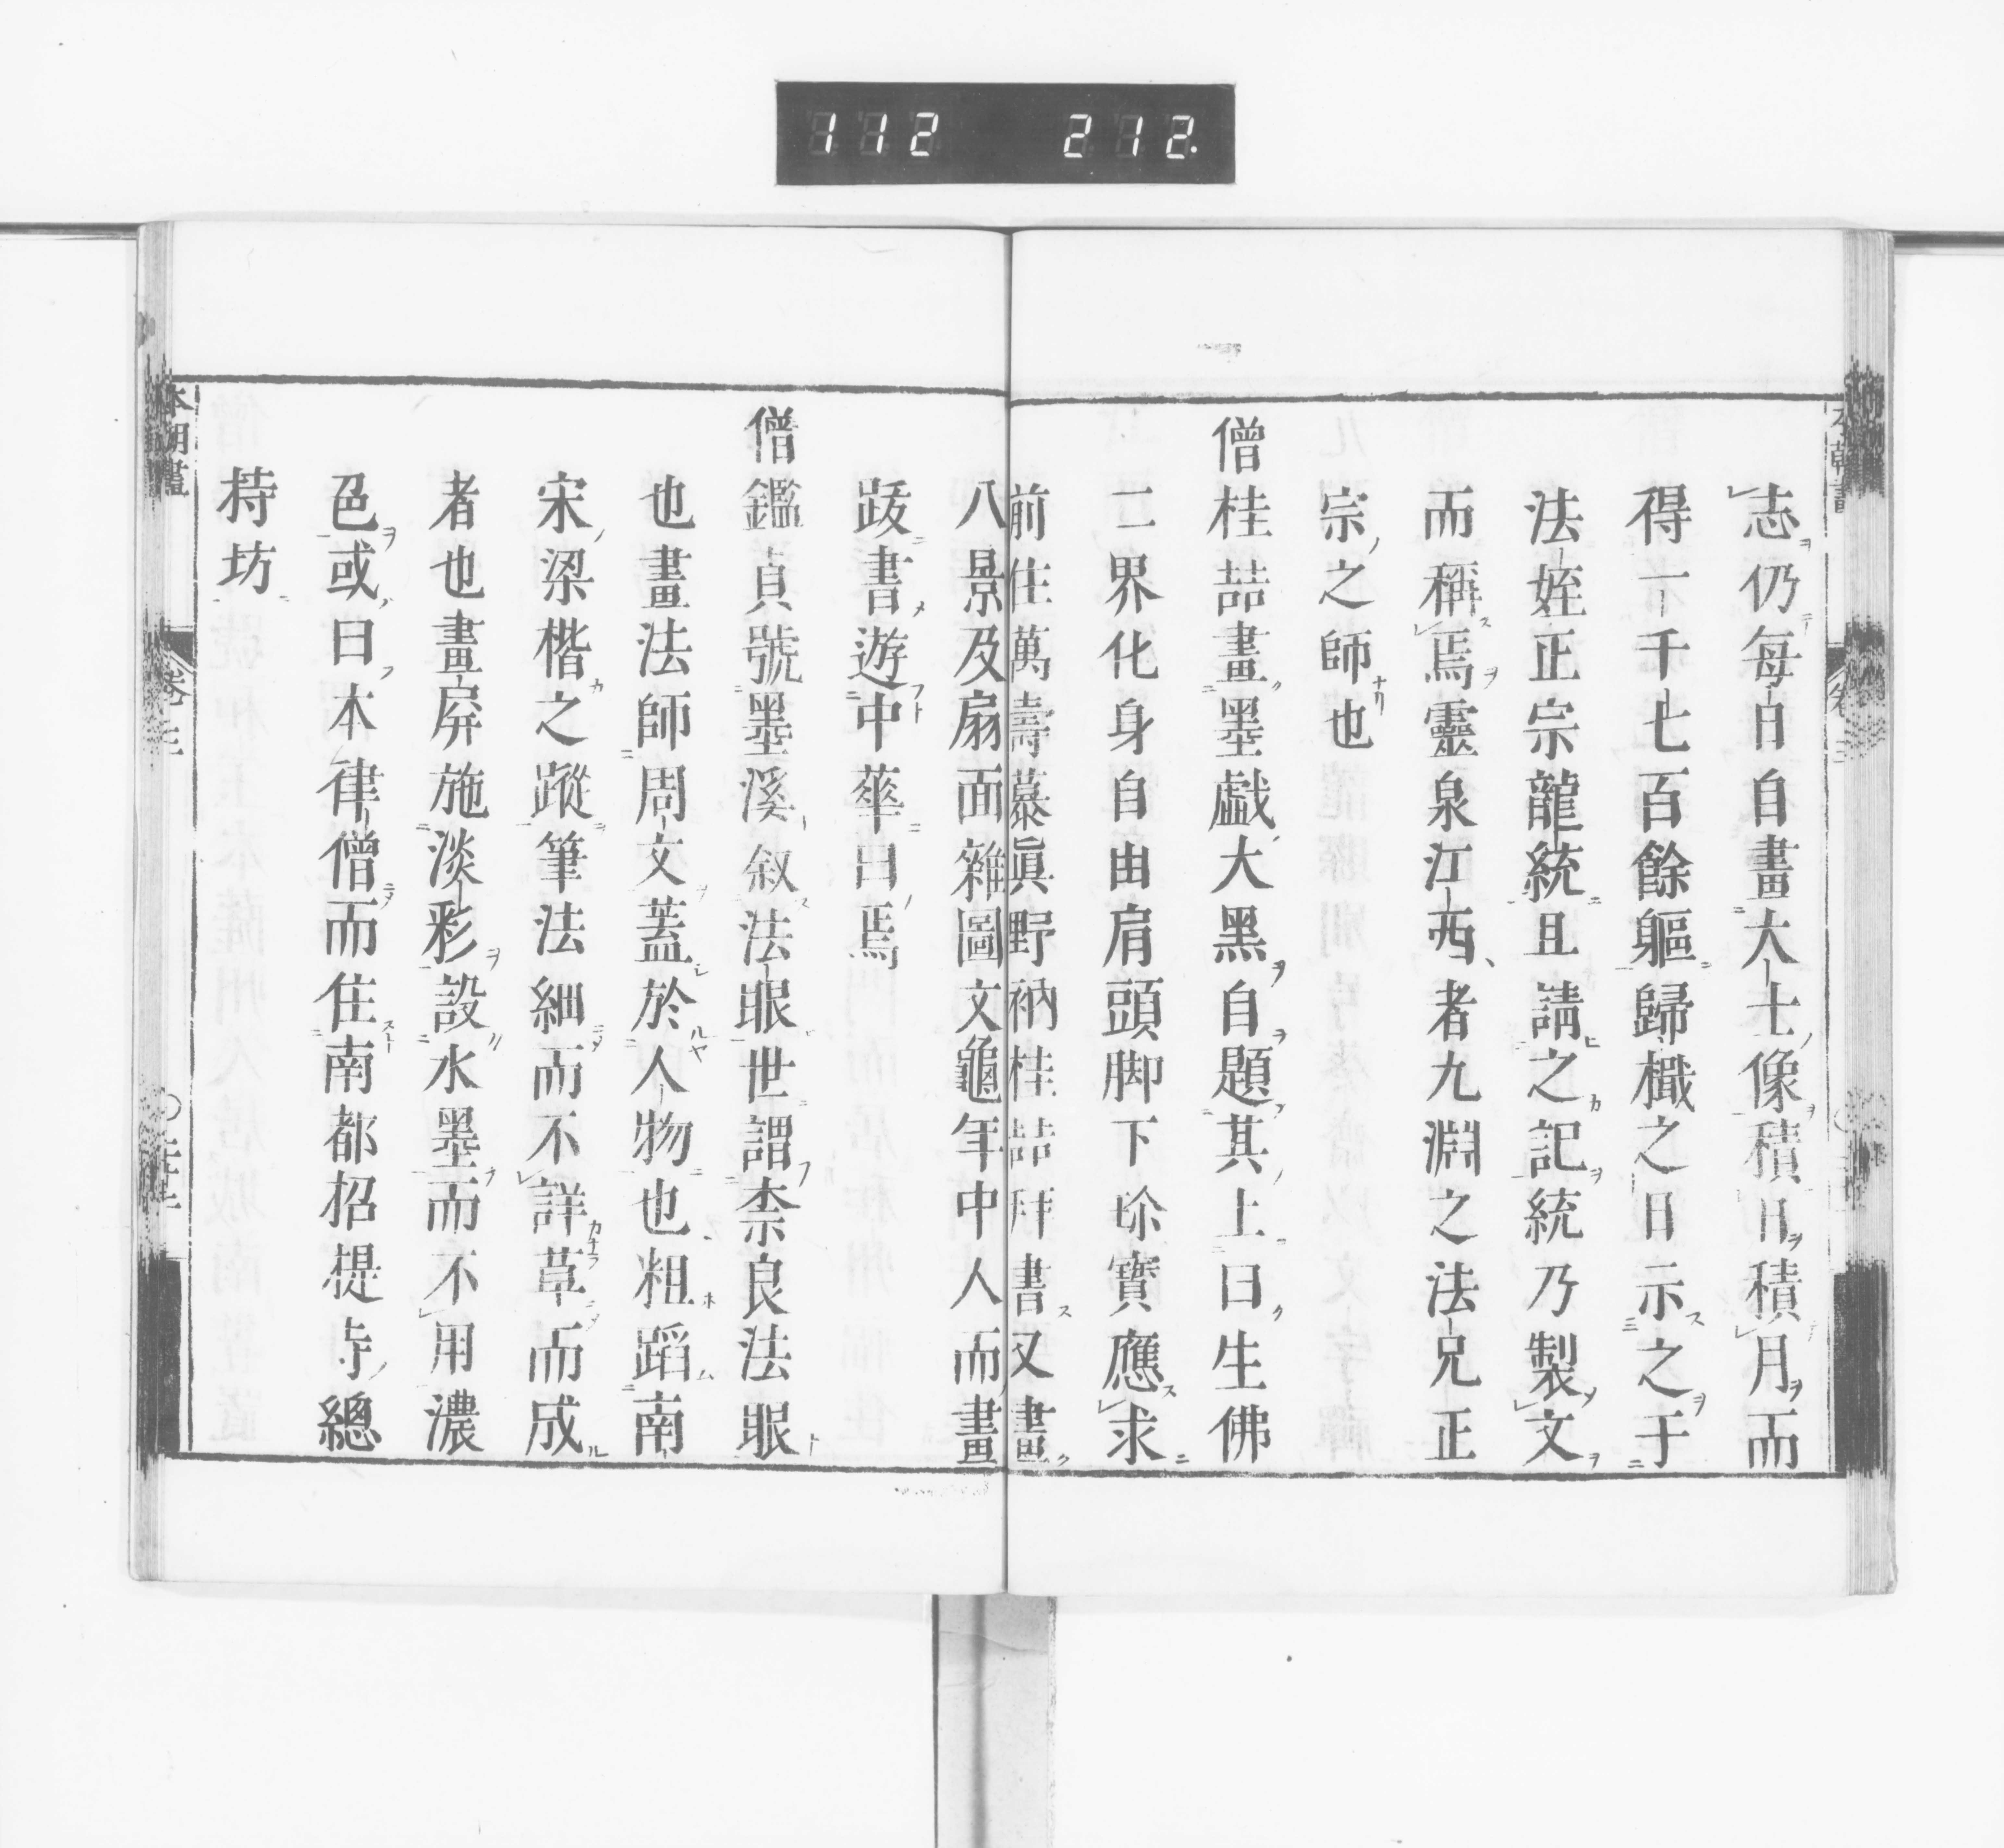 112 212.
志仍毎日自畫大士像積日積月而
得一千七百餘軀歸檝之日示之于
法姪正宗龍統且請之記統乃製文
而稱焉靈泉江西者九淵之法兄正
宗之師也
僧桂喆畫墨戯大黒自題其上曰生佛
二界化身自由肩頭脚下珎寶應求
前住萬壽慕眞野衲桂喆拜書又畫
八景及扇面雜圖文龜年中人而畫
跋書遊中華曰焉
僧鑑貞號墨溪叙法眼世謂柰良法眼
也畫法師周文蓋於人物也粗蹈南
宋梁楷之蹤筆法細而不詳草而成
者也畫屏施淡彩設水墨而不用濃
色或曰本律僧而住南都招提寺總
持坊